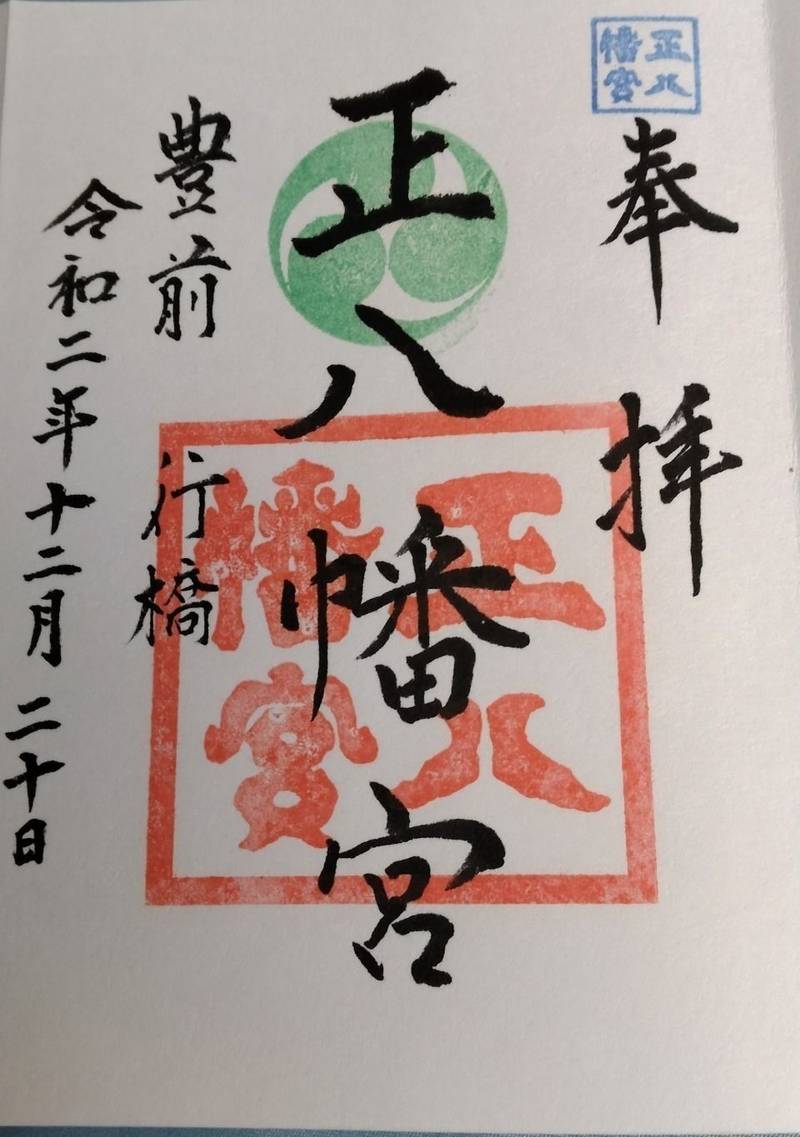 正八
幡宮
奉拝
正八幡宮
正八
幡宮
豊前 行橋
令和二年十二月二十日